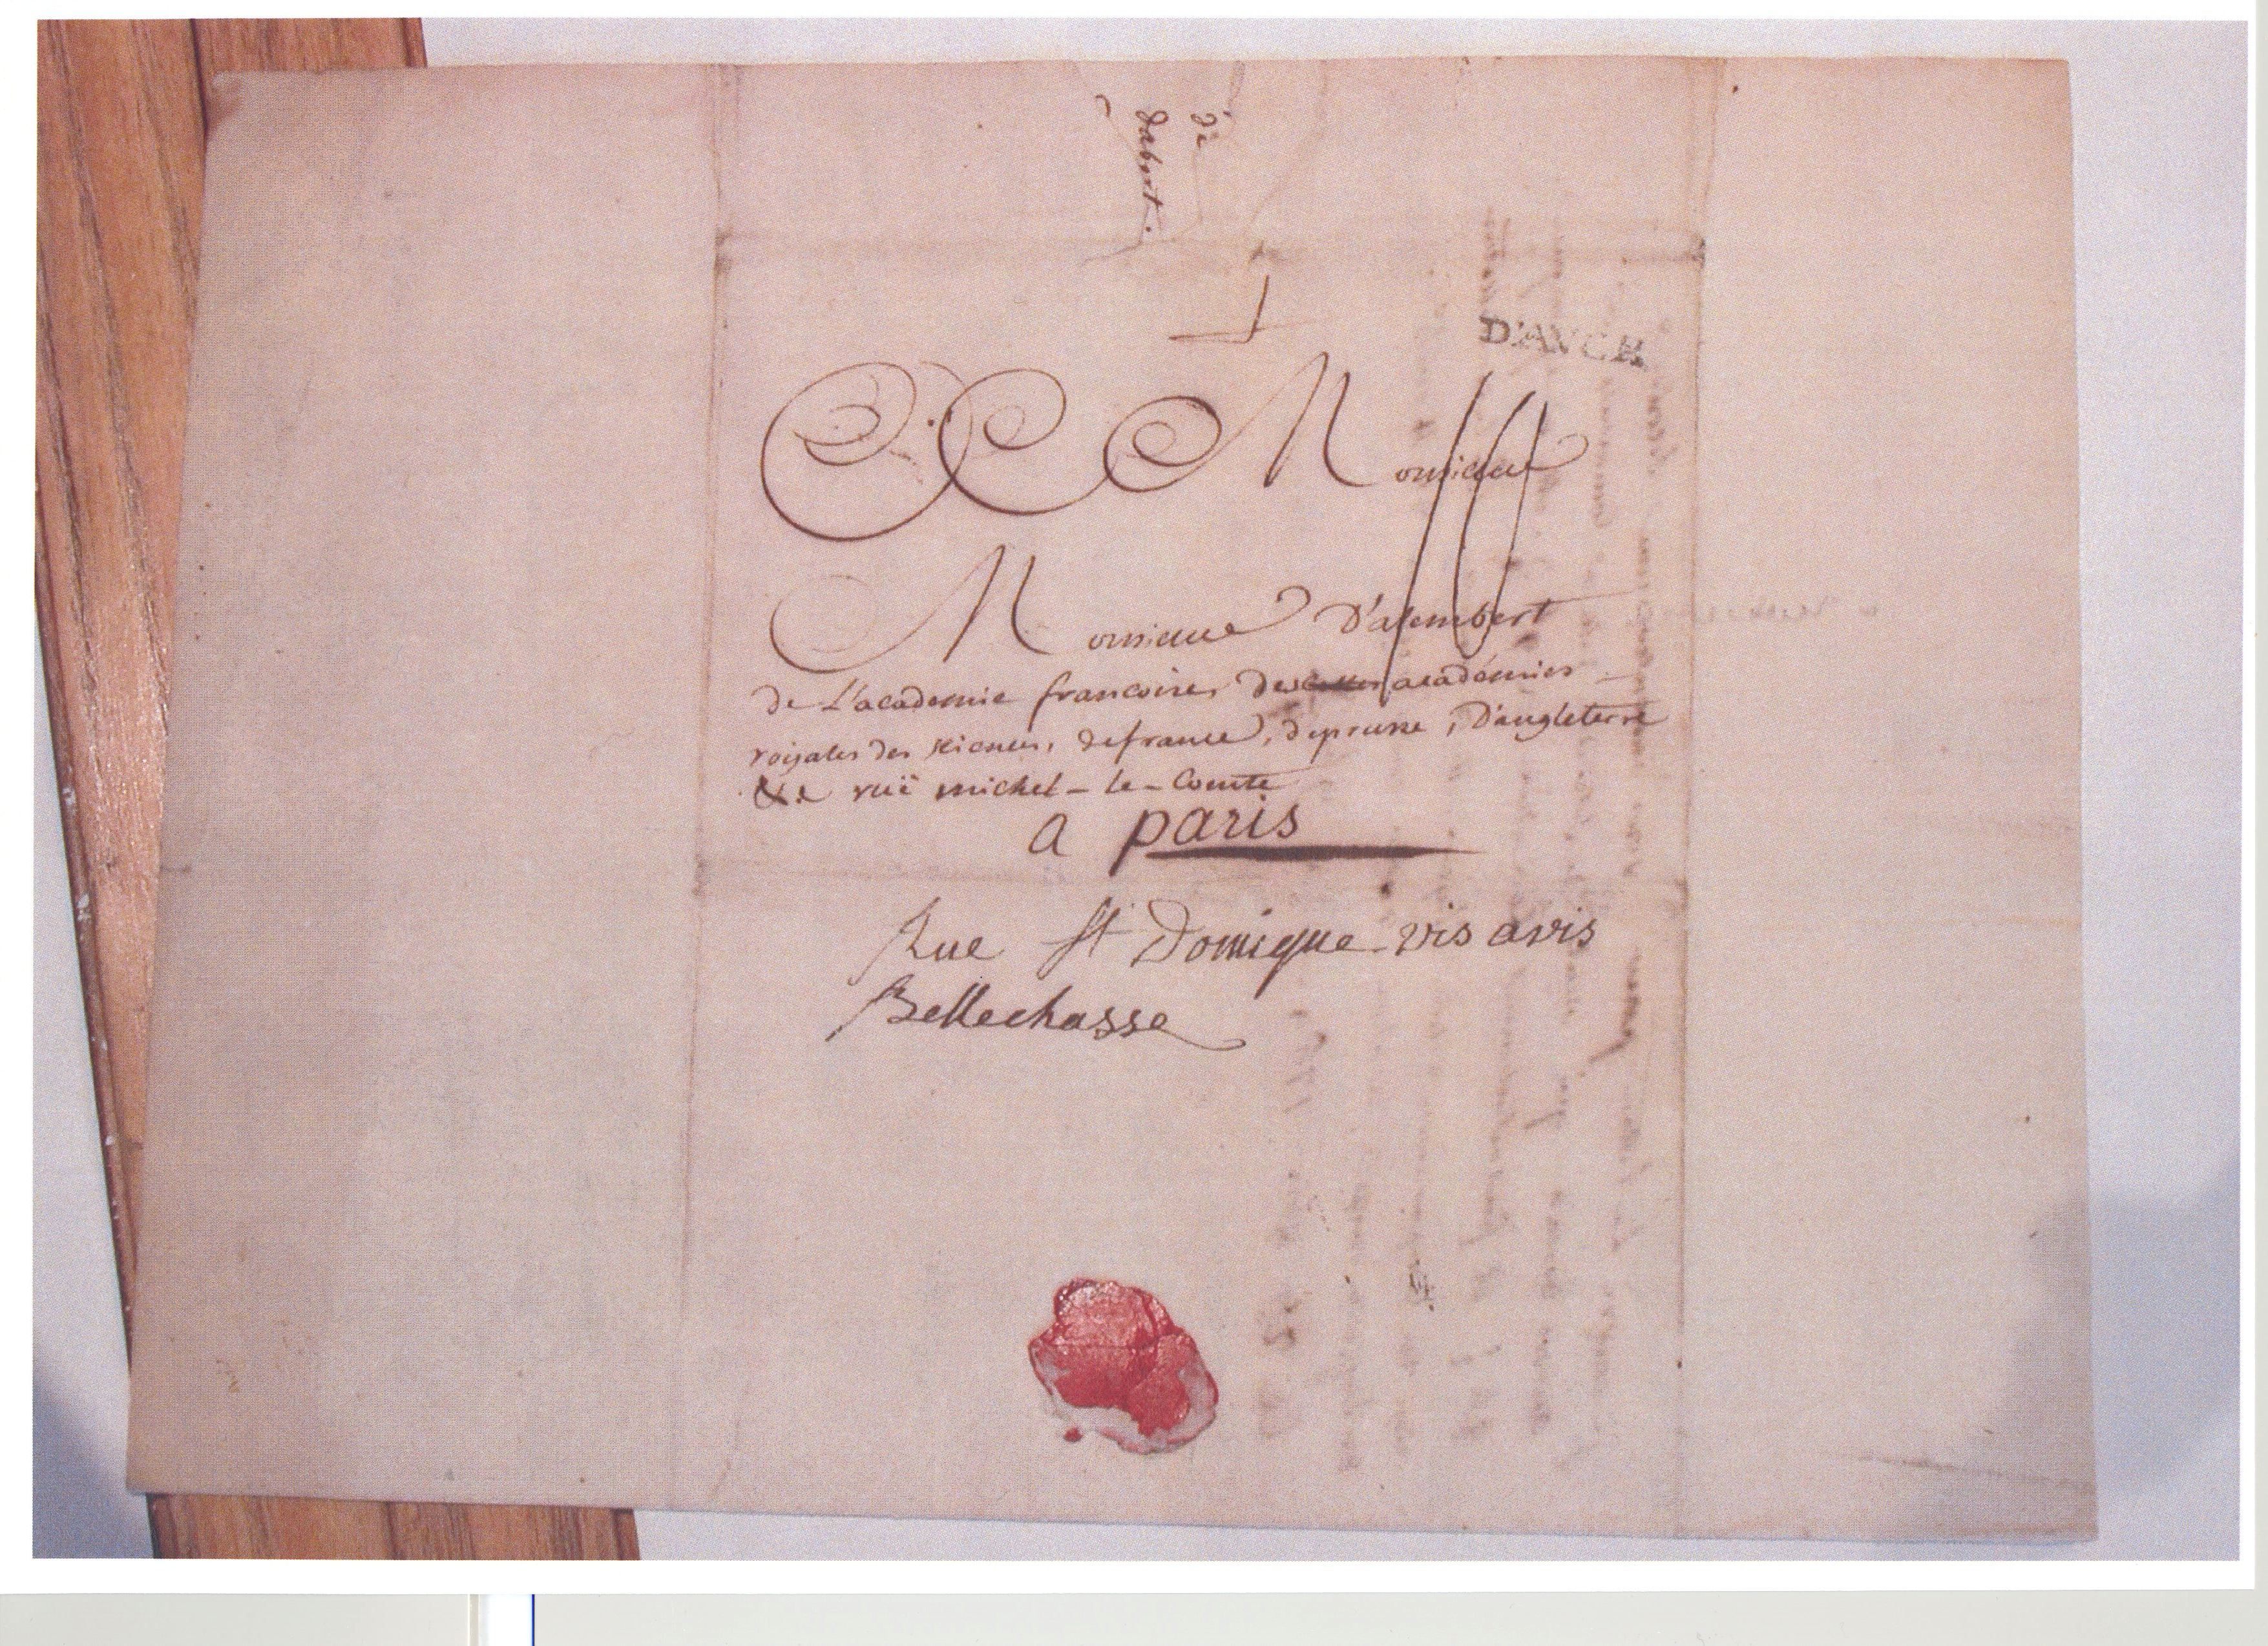 de
dabert.
D'AUCH
Monsieur
Monsieur D'alembert
de L'academie francoise, des academies
royales des sciences, de france, de prusse, D'angleterre
&c ruë michel-le-Comte
a paris
Rue St Domique vis avis
Bellechasse